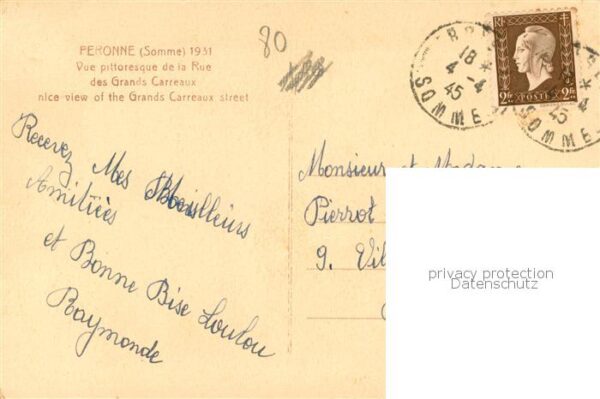 PERONNE (Somme) 1931
Vue pittoresque de la Rue
des Grands Carreaux
nice view of the Grands Carreaux street
80
18 *
4-4
45
SOMME
45
SOMME
RF
2F POSTES 2F
Recevez Mes Meilleurs
Amitiées
et Bonne Bise Loulou
Raymonde
Monsieur et Madame
Pierrot
9. Vil
privacy protection
Datenschutz